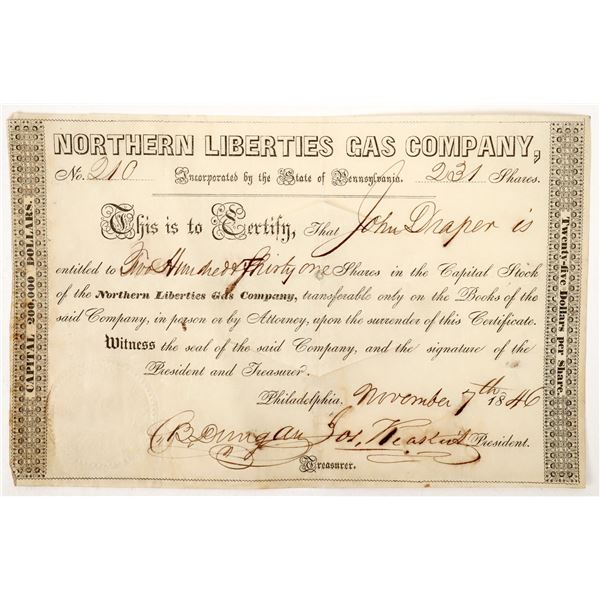 NORTHERN LIBERTIES GAS COMPANY,
No. 210 Incorporated by the State of Pennsylvania. 231 Shares.
This is to Certify, That John Draper is
entitled to Two Hundred & Thirty one Shares in the Capital Stock
of the Northern Liberties Gas Company, transferable only on the Books of the
said Company, in person or by Attorney, upon the surrender of this Certificate.
Witness the seal of the said Company, and the signature of the
President and Treasurer.
Philadelphia. November 7th 1846
C B Dungan Jos. President.
Treasurer.
CAPITAL 200,000 DOLLARS.
Twenty-five Dollars per Share.